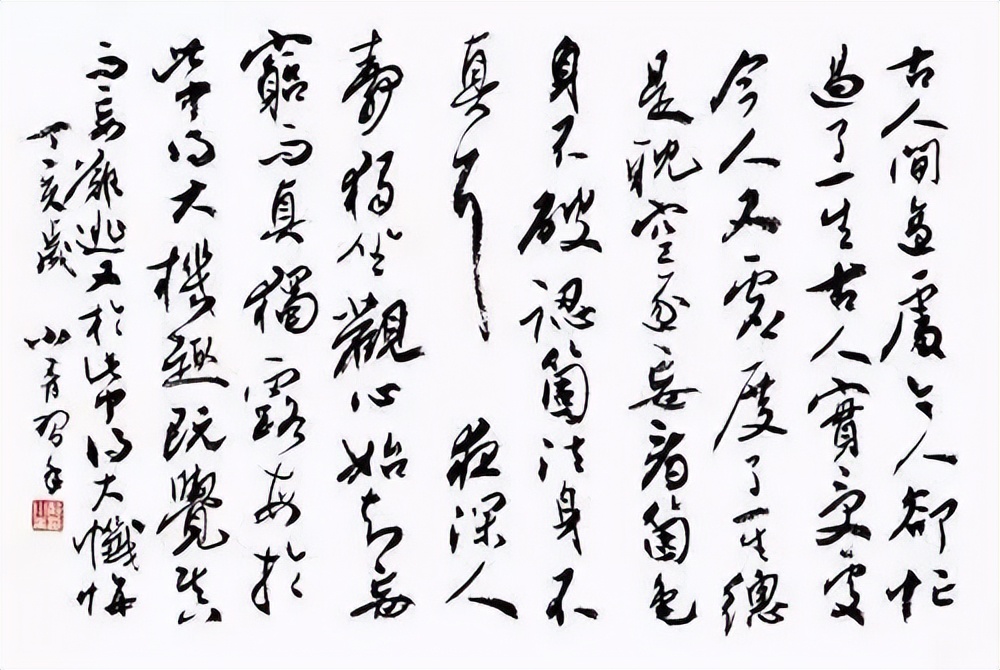 古人間適處今人卻忙
過了一生古人實受處
今人又虛度了一生總
是耽空逐妄看箇色
身不破認箇法身不
真耳 夜深人
靜独坐觀心始知妄
窮而真獨露每於
此中得大機趣既覺真
而妄難逃又於此中得大懺悔
丁亥歲 小青